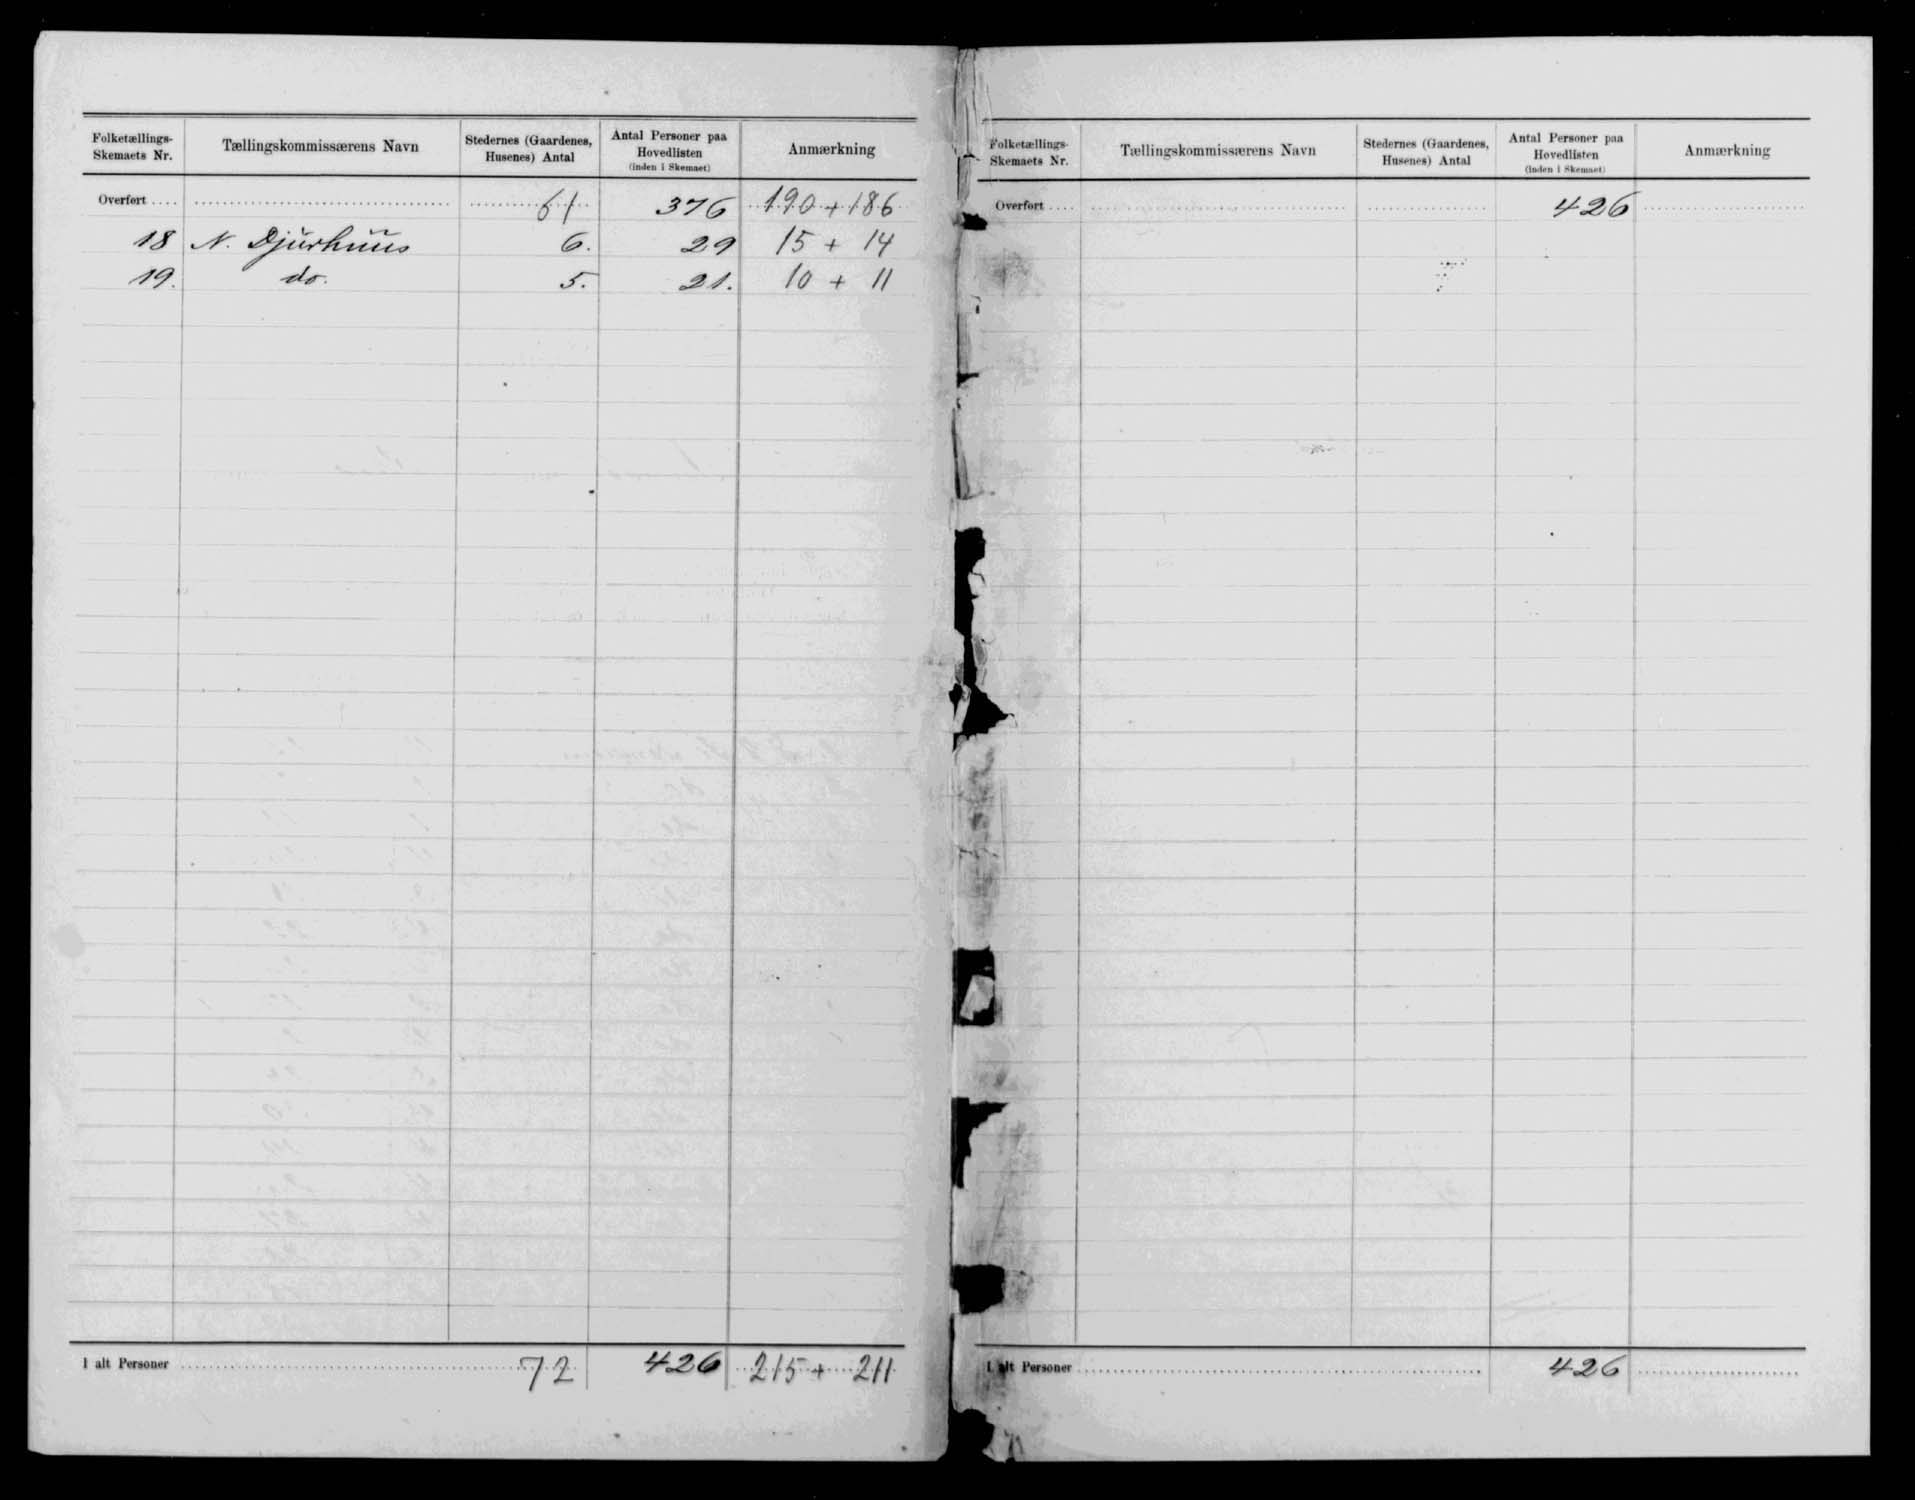 Folketællings-Skemaets Nr. | Tællingskommissærens Navn | Stedernes (Gaardenes, Husenes) Antal | Antal Personer paa Hovedlisten (inden i Skemaet) | Anmærkning
Overført .... | 61 | 376 | 190 + 186
18 | N. Djurhuus | 6. | 29 | 15 + 14
19. | do. | 5. | 21. | 10 + 11
I alt Personer | 72 | 426 | 215 + 211
Folketællings-Skemaets Nr. | Tællingskommissærens Navn | Stedernes (Gaardenes, Husenes) Antal | Antal Personer paa Hovedlisten (inden i Skemaet) | Anmærkning
Overført .... | 426
I alt Personer | 426